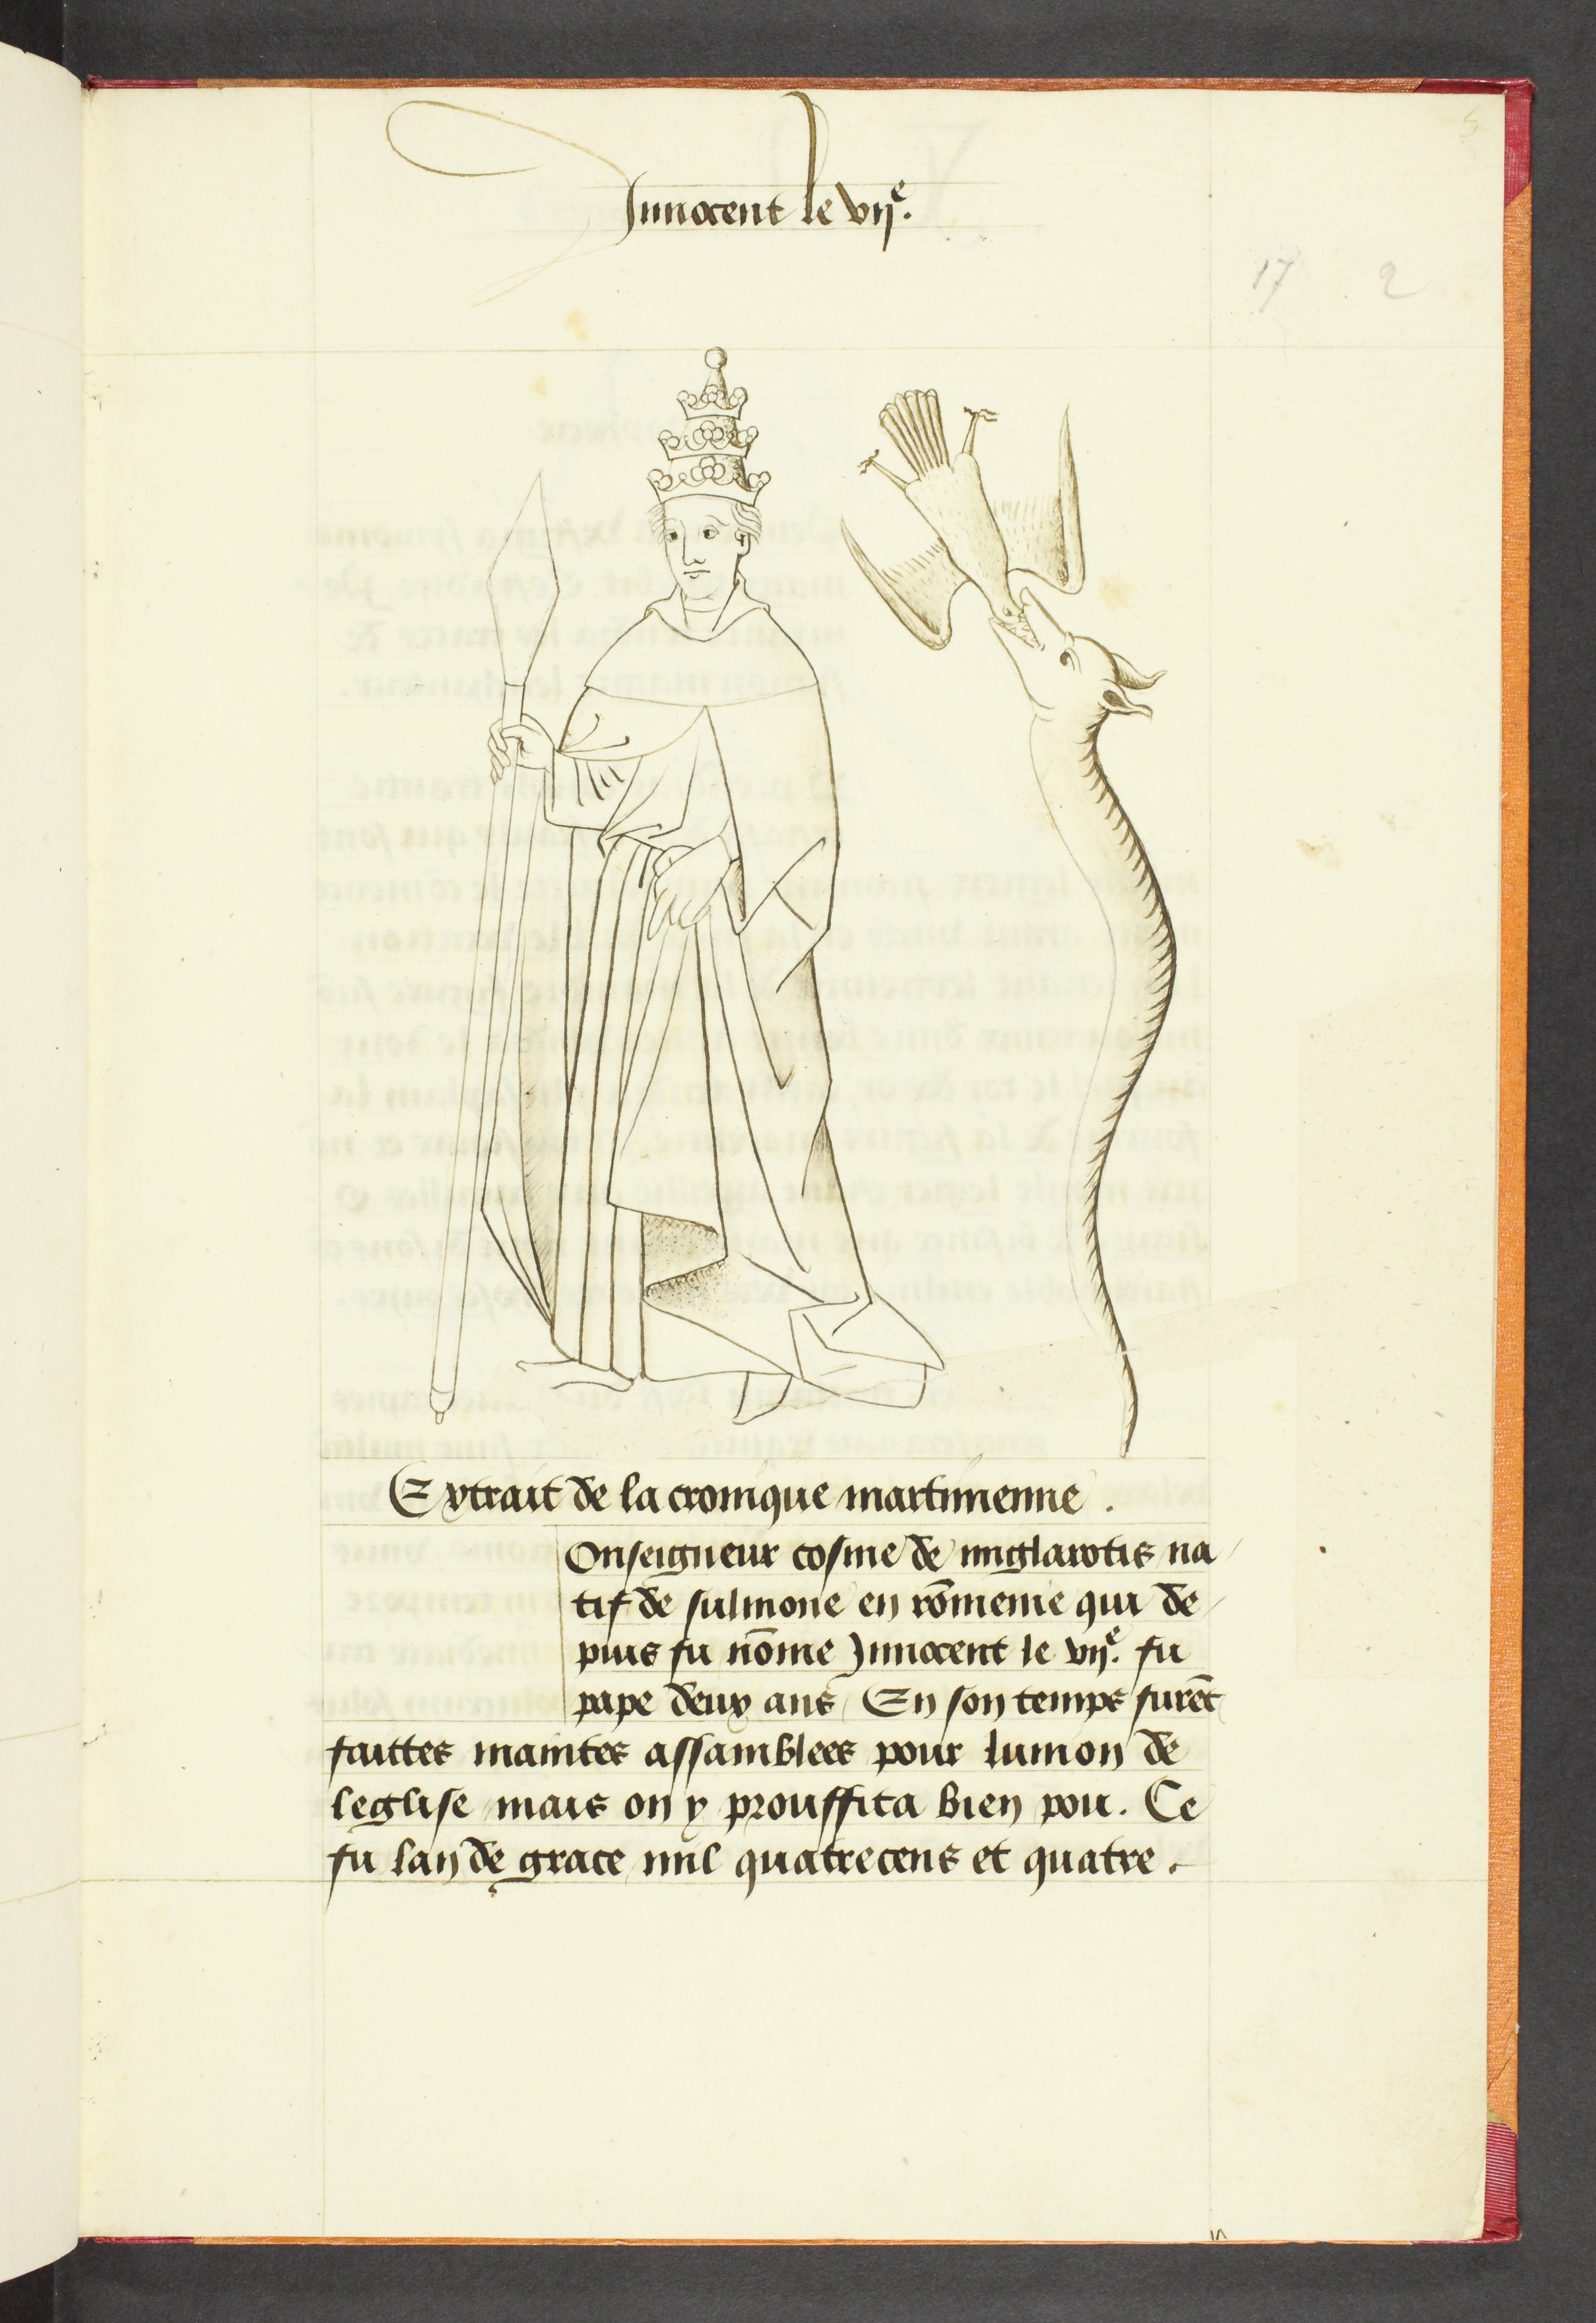 Innocent le vije.
5
17 2
Extrait de la cronique martinienne.
Onseigneur cosme de miglarotis na
tif de sulmone en rōmenie qui de
puis fu nōme Innocent le vije. fu
pape deux ans En son temps furēt
faittes maintes assamblees pour lunion de
leglise mais on y prouffita bien pou. Ce
fu lan de grace mil quatrecens et quatre.